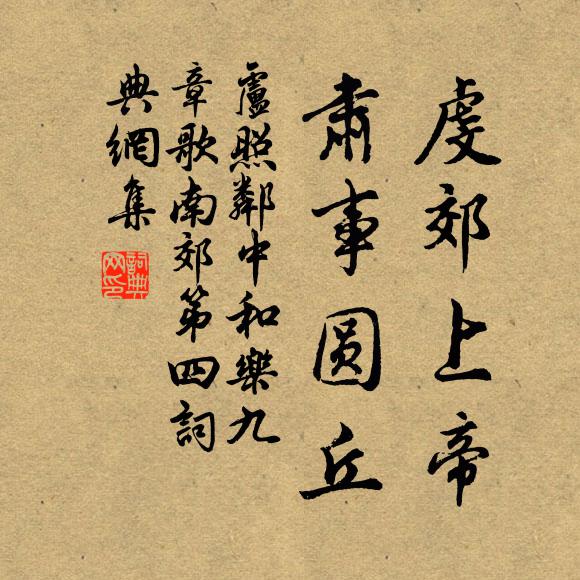 虔郊上帝
肅事圓丘
盧照鄰中和樂九
章歌南郊第四詞
典網集
詞典
网印